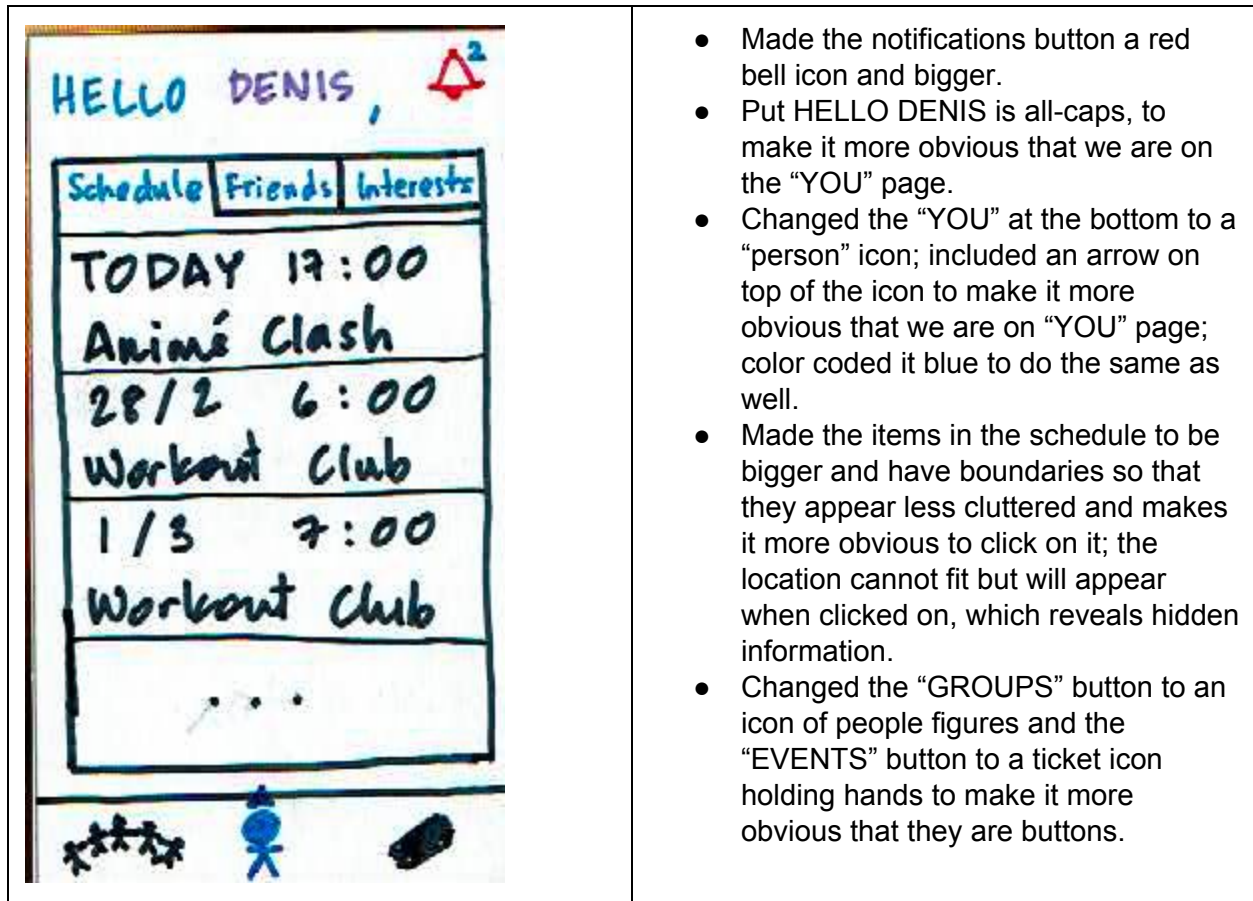 HELLO DENIS,
2
Schedule Friends Interests
TODAY 17:00
Animé Clash
28/2 6:00
Workout Club
1/3 7:00
Workout Club
...
● Made the notifications button a red
bell icon and bigger.
● Put HELLO DENIS is all-caps, to
make it more obvious that we are on
the “YOU” page.
● Changed the “YOU” at the bottom to a
“person” icon; included an arrow on
top of the icon to make it more
obvious that we are on “YOU” page;
color coded it blue to do the same as
well.
● Made the items in the schedule to be
bigger and have boundaries so that
they appear less cluttered and makes
it more obvious to click on it; the
location cannot fit but will appear
when clicked on, which reveals hidden
information.
● Changed the “GROUPS” button to an
icon of people figures and the
“EVENTS” button to a ticket icon
holding hands to make it more
obvious that they are buttons.